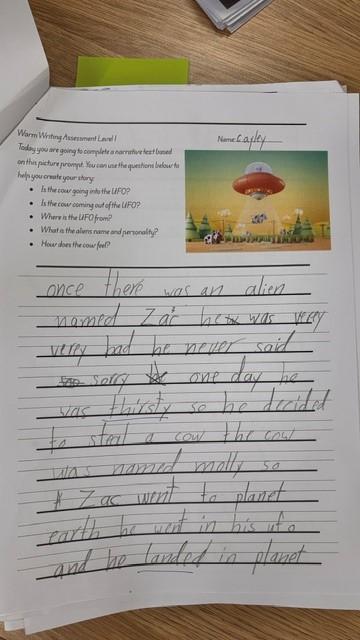 Warm Writing Assessment Level 1
Name: Cayley
Today you are going to complete a narrative text based
on this picture prompt. You can use the questions below to
help you create your story:
• Is the cow going into the UFO?
• Is the cow coming out of the UFO?
• Where is the UFO from?
• What is the aliens name and personality?
• How does the cow feel?
once there was an alien
named Zac he was verey
verey bad he never said
sorry one day he
was thirsty so he decided
to steal a cow the cow
was named molly so
Zac went to planet
earth he went in his ufo
and he landed in planet